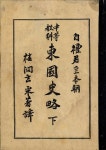 自檀君至本朝
中等
教科
東國史略 下
玄采著譯